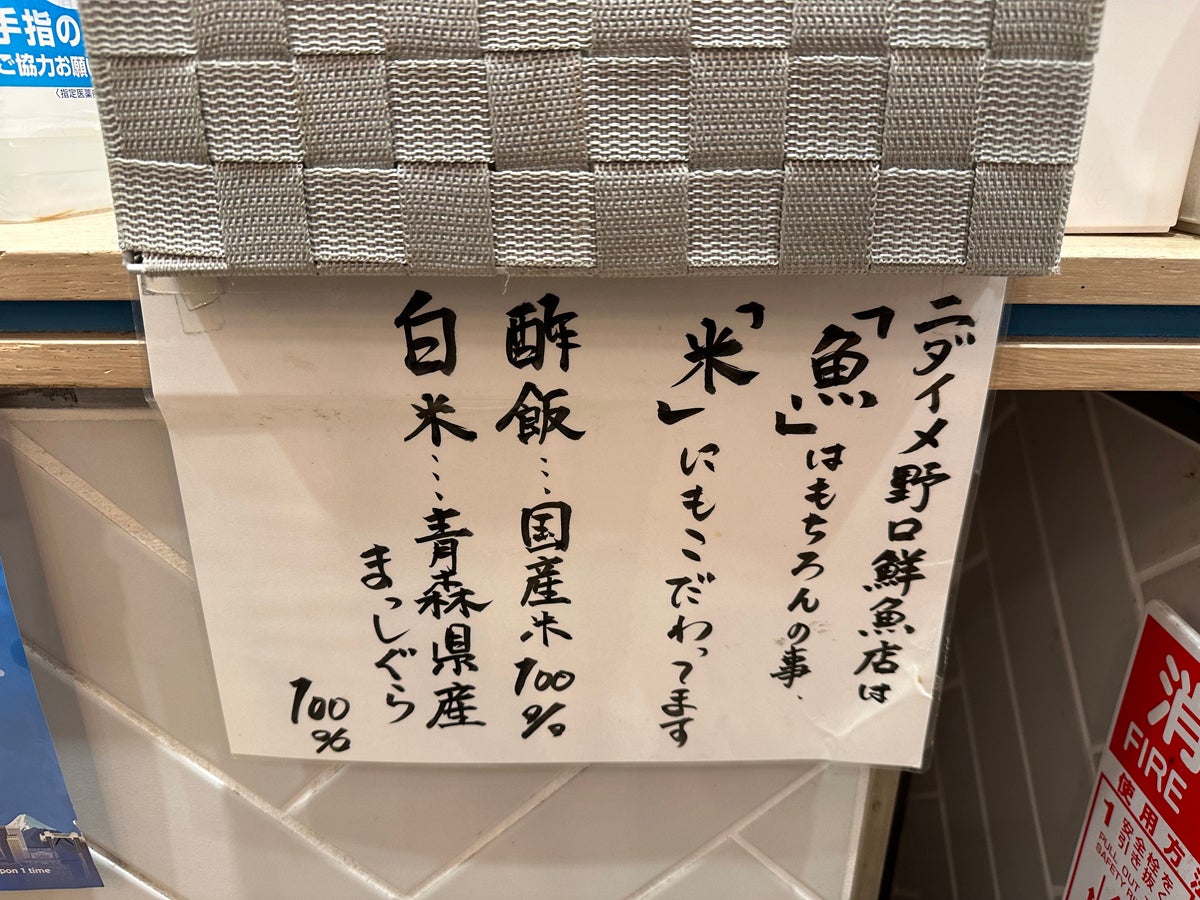 ニダイメ野口鮮魚店は
「魚」はもちろんの事、
「米」にもこだわってます
酢飯…国産米100%
白米…青森県産
まっしぐら
100%
手指の
ご協力お願
〈指定医薬
pon 1 time
消
FIRE
使用方
1
安全栓を
引き抜く
PULL OUT
SAFETY